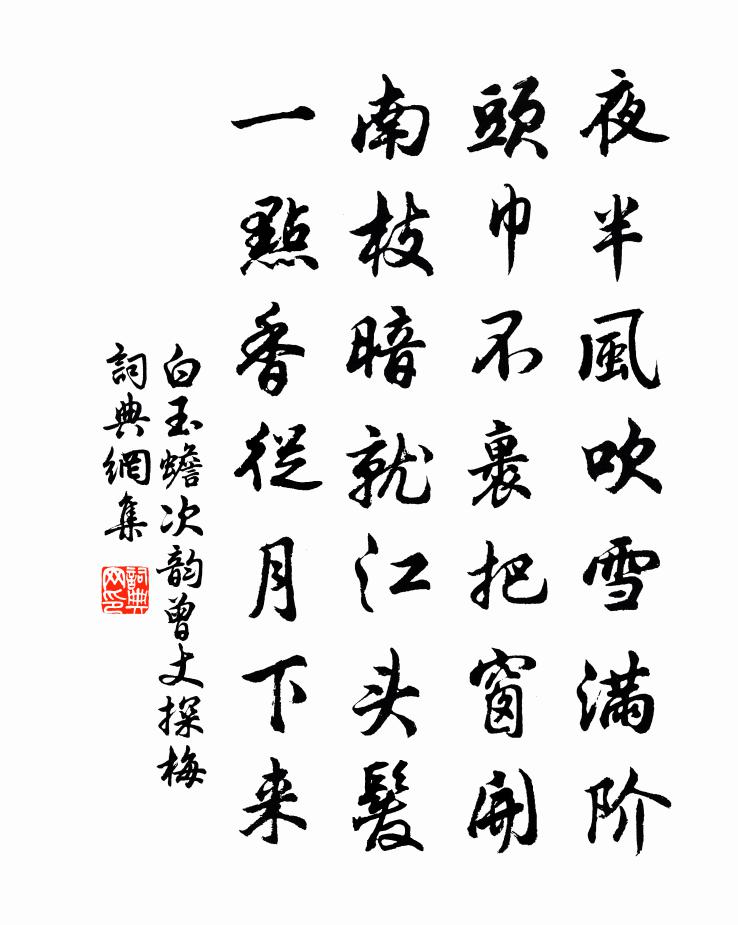 夜半風吹雪满阶
頭巾不裹把窗開
南枝暗就江头髮
一點香從月下来
白玉蟾次韵曾丈探梅
詞典網集
詞典网印